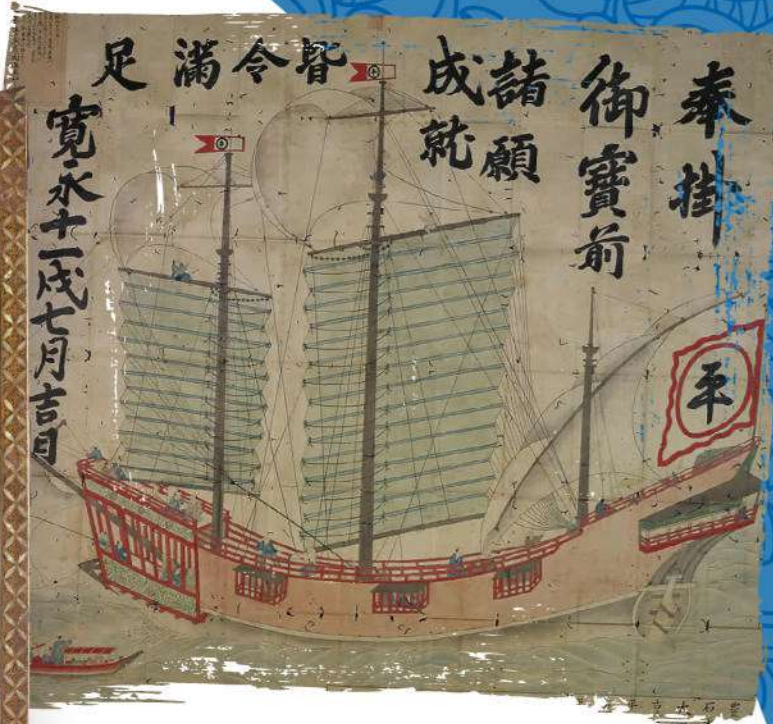 奉掛
御寳前
諸願
成就
皆令滿足
寛永十一戌七月吉日
平